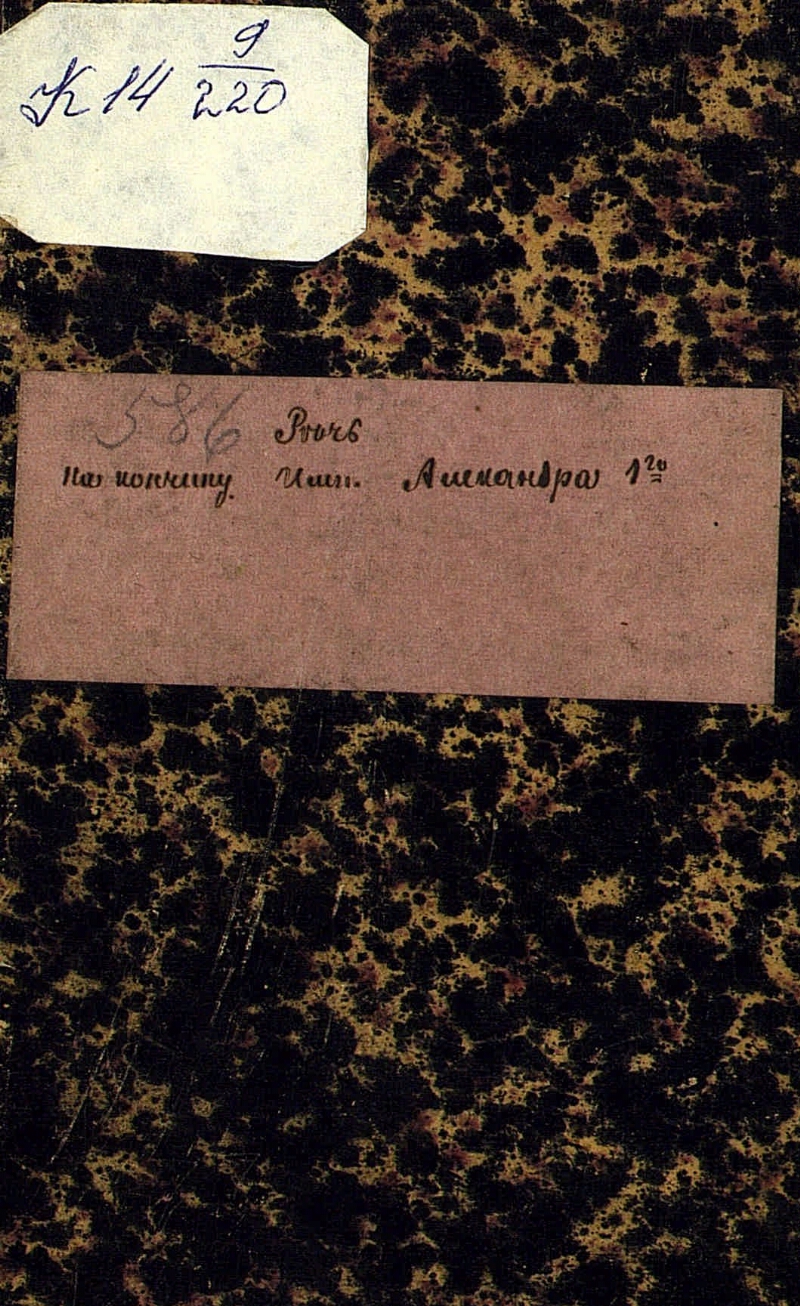 К 14 9/220
586 Рѣчь
на кончину Имп. Александра 1го